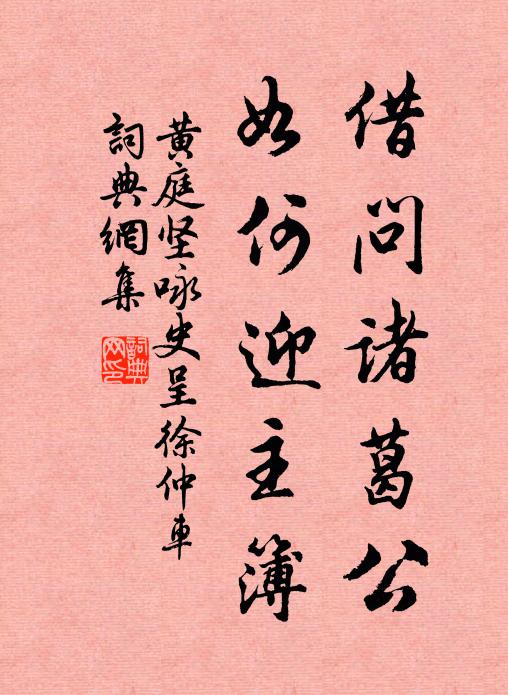 借問諸葛公
如何迎主簿
黄庭坚咏史呈徐仲車
詞典網集
詞典网印